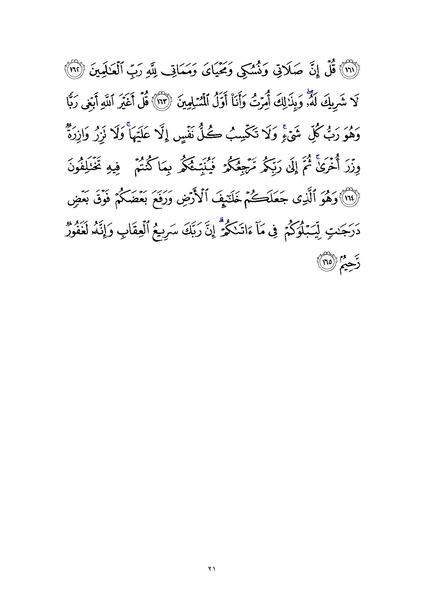 ﴿١٦١﴾ قُلْ إِنَّ صَلَاتِي وَنُسُكِي وَمَحْيَايَ وَمَمَاتِي لِلَّهِ رَبِّ الْعَٰلَمِينَ ﴿١٦٢﴾
لَا شَرِيكَ لَهُۥۖ وَبِذَٰلِكَ أُمِرْتُ وَأَنَا۠ أَوَّلُ الْمُسْلِمِينَ ﴿١٦٣﴾ قُلْ أَغَيْرَ اللَّهِ أَبْغِي رَبًّا
وَهُوَ رَبُّ كُلِّ شَيْءٍۚ وَلَا تَكْسِبُ كُلُّ نَفْسٍ إِلَّا عَلَيْهَاۚ وَلَا تَزِرُ وَازِرَةٌ
وِزْرَ أُخْرَىٰۚ ثُمَّ إِلَىٰ رَبِّكُم مَّرْجِعُكُمْ فَيُنَبِّئُكُم بِمَا كُنتُمْ فِيهِ تَخْتَلِفُونَ
﴿١٦٤﴾ وَهُوَ الَّذِي جَعَلَكُمْ خَلَٰٓئِفَ الْأَرْضِ وَرَفَعَ بَعْضَكُمْ فَوْقَ بَعْضٍ
دَرَجَٰتٍ لِّيَبْلُوَكُمْ فِي مَآ ءَاتَىٰكُمْۗ إِنَّ رَبَّكَ سَرِيعُ الْعِقَابِ وَإِنَّهُۥ لَغَفُورٌ
رَّحِيمٌ ﴿١٦٥﴾
٢١